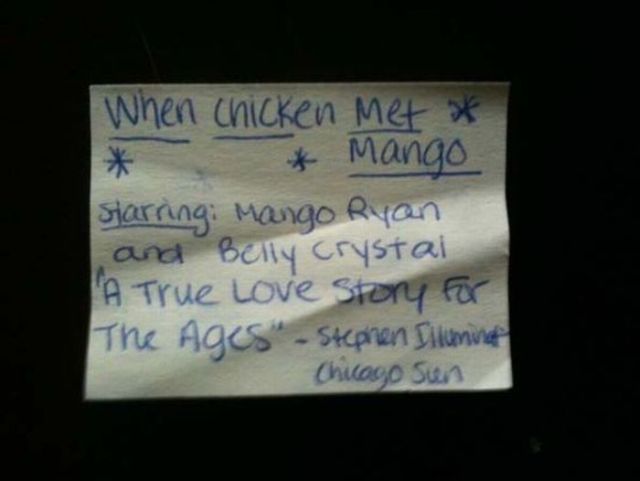 When Chicken Met *
* * Mango
starring: Mango Ryan
and Belly Crystal
"A True Love Story For
The Ages" - Stephen Illuminat
Chicago Sun